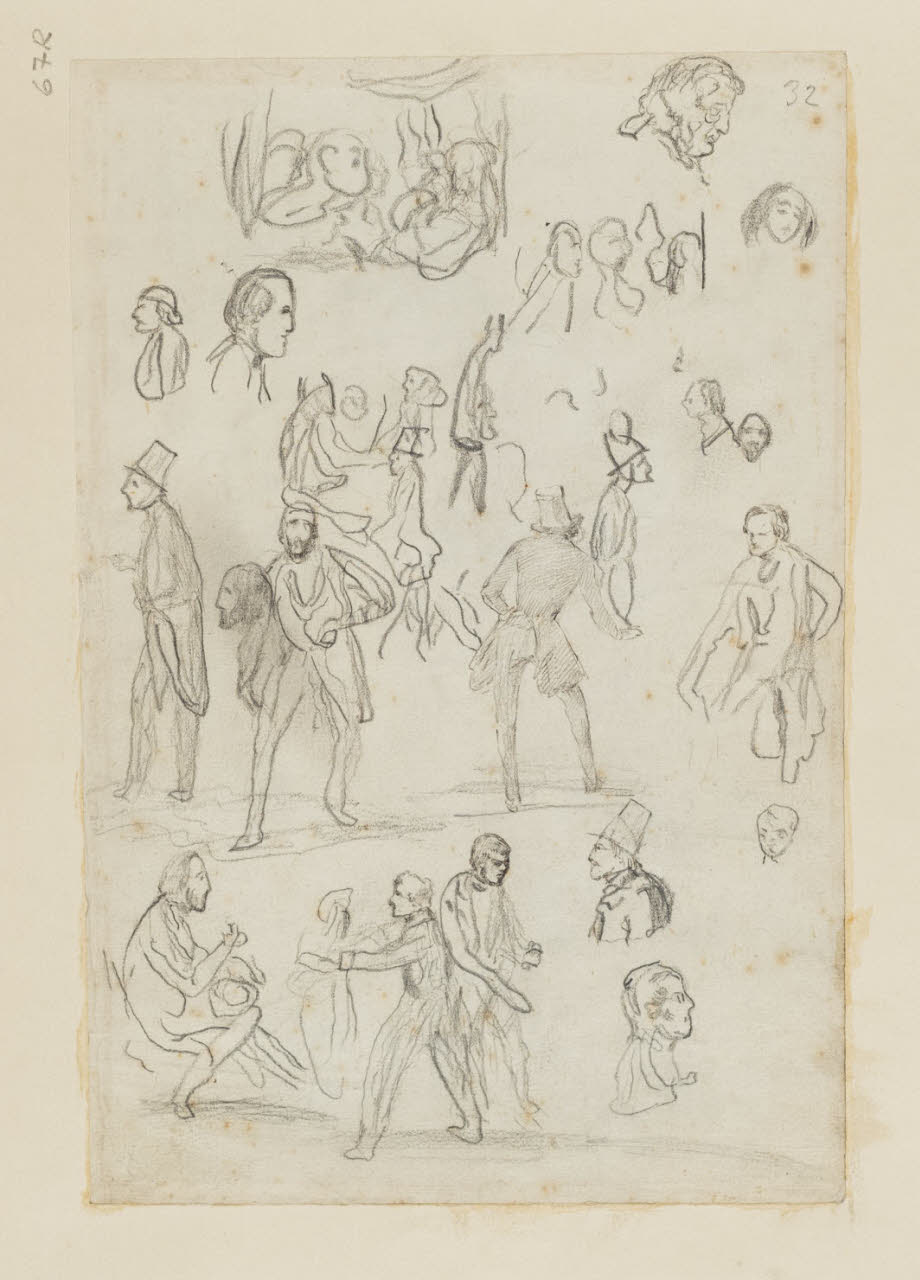 67R
32